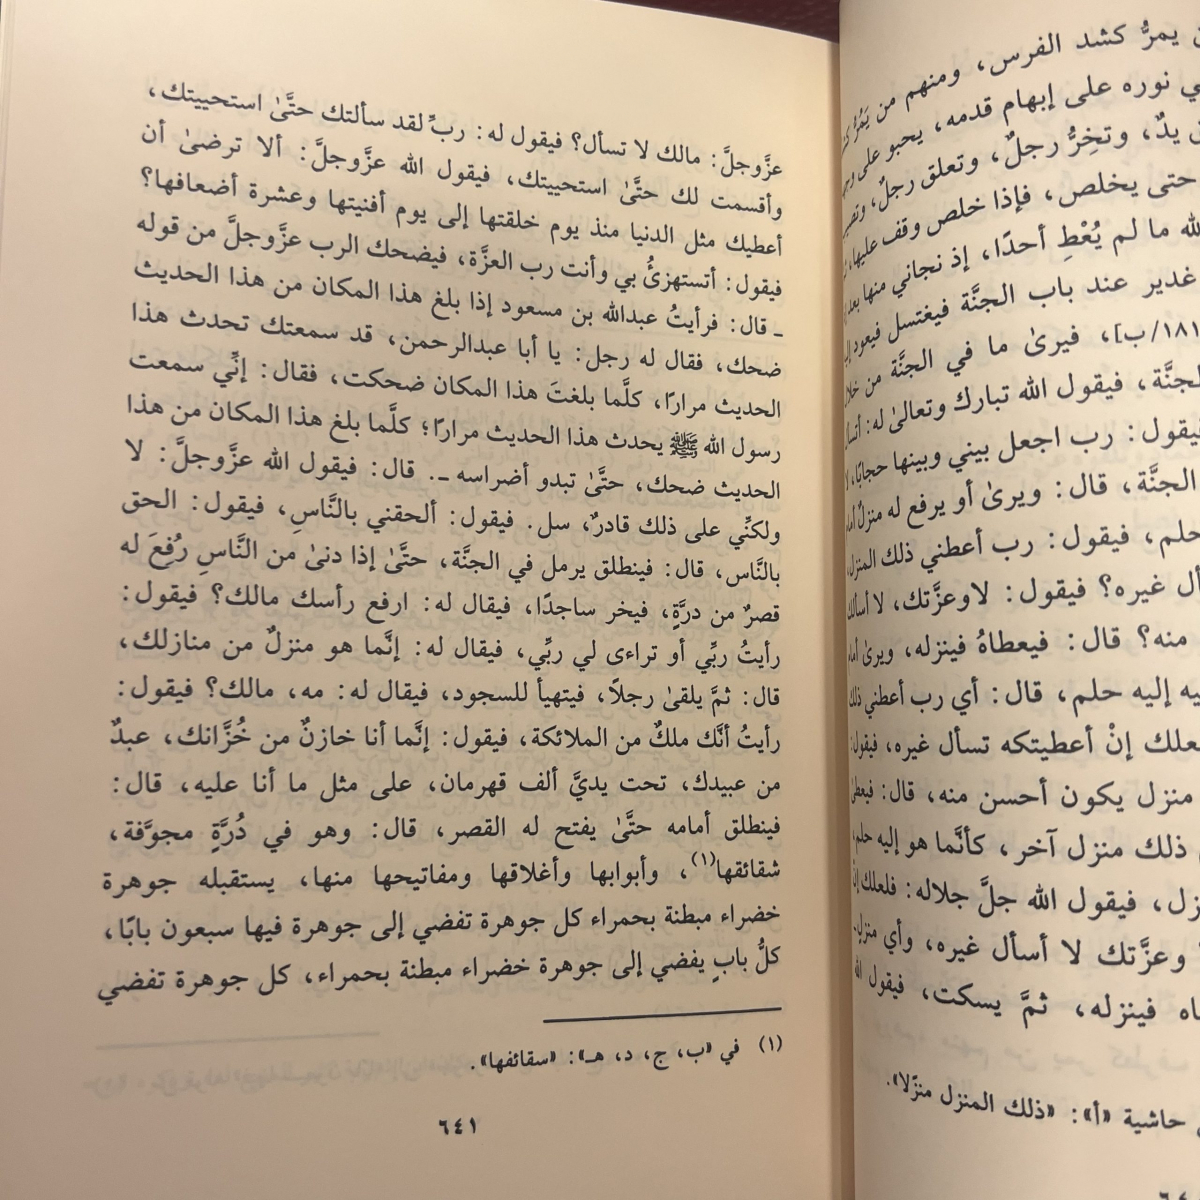 ن يمرُّ كشد الفرس، ومنهم من يَمُرُّ
ي نوره على إبهام قدمه، يحبو على
يدٌ، وتخِرُّ رجلٌ، وتعلق رجلٌ،
حتى يخلص، فإذا خلص وقف عليها،
لله ما لم يُعْطِ أحدًا، إذ نجاني منها بعد
غدير عند باب الجنَّة فيغتسل فيعود
١٨١/ب]، فيرىٰ ما في الجنَّة من
لجنَّة، فيقول الله تبارك وتعالىٰ له:
فيقول: رب اجعل بيني وبينها حجابًا،
الجنَّة، قال: ويرىٰ أو يرفع له منزلٌ
حلم، فيقول: رب أعطني ذلك المنزل،
أل غيره؟ فيقول: لاوعزَّتك، لا أسألك
منه؟ قال: فيعطاهُ فينزله، ويرىٰ
يه إليه حلم، قال: أي رب أعطني ذلك
علك إنْ أعطيتكه تسأل غيره، فيقول:
منزل يكون أحسن منه، قال:
ذلك منزل آخر، كأنَّما هو إليه حلم،
زل، فيقول الله جلَّ جلاله: فلعلك إن
وعزَّتك لا أسأل غيره، وأي منزلٍ
اه فينزله، ثمَّ يسكت، فيقول الله
حاشية «أ»: «ذلك المنزل منزلًا».
عزَّوجلَّ: مالك لا تسأل؟ فيقول له: ربِّ لقد سألتك حتَّىٰ استحييتك،
وأقسمت لك حتَّىٰ استحييتك، فيقول الله عزَّوجلَّ: ألا ترضىٰ أن
أعطيك مثل الدنيا منذ يوم خلقتها إلى يوم أفنيتها وعشرة أضعافها؟
فيقول: أتستهزئُ بي وأنت رب العزَّة، فيضحك الرب عزَّوجلَّ من قوله
ـ قال: فرأيتُ عبدالله بن مسعود إذا بلغ هذا المكان من هذا الحديث
ضحك، فقال له رجل: يا أبا عبدالرحمن، قد سمعتك تحدث هذا
الحديث مرارًا، كلَّما بلغتَ هذا المكان ضحكت، فقال: إنِّي سمعت
رسول الله ﷺ يحدث هذا الحديث مرارًا؛ كلَّما بلغ هذا المكان من هذا
الحديث ضحك، حتَّىٰ تبدو أضراسه ـ. قال: فيقول الله عزَّوجلَّ: لا
ولكنِّي على ذلك قادرٌ، سل. فيقول: ألحقني بالنَّاسِ، فيقول: الحق
بالنَّاس، قال: فينطلق يرمل في الجنَّة، حتَّىٰ إذا دنىٰ من النَّاسِ رُفِعَ له
قصرٌ من درَّةٍ، فيخر ساجدًا، فيقال له: ارفع رأسك مالك؟ فيقول:
رأيتُ ربِّي أو تراءى لي ربِّي، فيقال له: إنَّما هو منزلٌ من منازلك،
قال: ثمَّ يلقىٰ رجلاً، فيتهيأ للسجود، فيقال له: مه، مالك؟ فيقول:
رأيتُ أنَّك ملكٌ من الملائكة، فيقول: إنَّما أنا خازنٌ من خُزَّانك، عبدٌ
من عبيدك، تحت يديَّ ألف قهرمان، على مثل ما أنا عليه، قال:
فينطلق أمامه حتَّىٰ يفتح له القصر، قال: وهو في دُرَّةٍ مجوَّفة،
شقائقها(١)، وأبوابها وأغلاقها ومفاتيحها منها، يستقبله جوهرة
خضراء مبطنة بحمراء كل جوهرة تفضي إلى جوهرة فيها سبعون بابًا،
كلُّ بابٍ يفضي إلى جوهرة خضراء مبطنة بحمراء، كل جوهرة تفضي
(١) في «ب، ج، د، هـ»: «سقائفها».
٦٤١